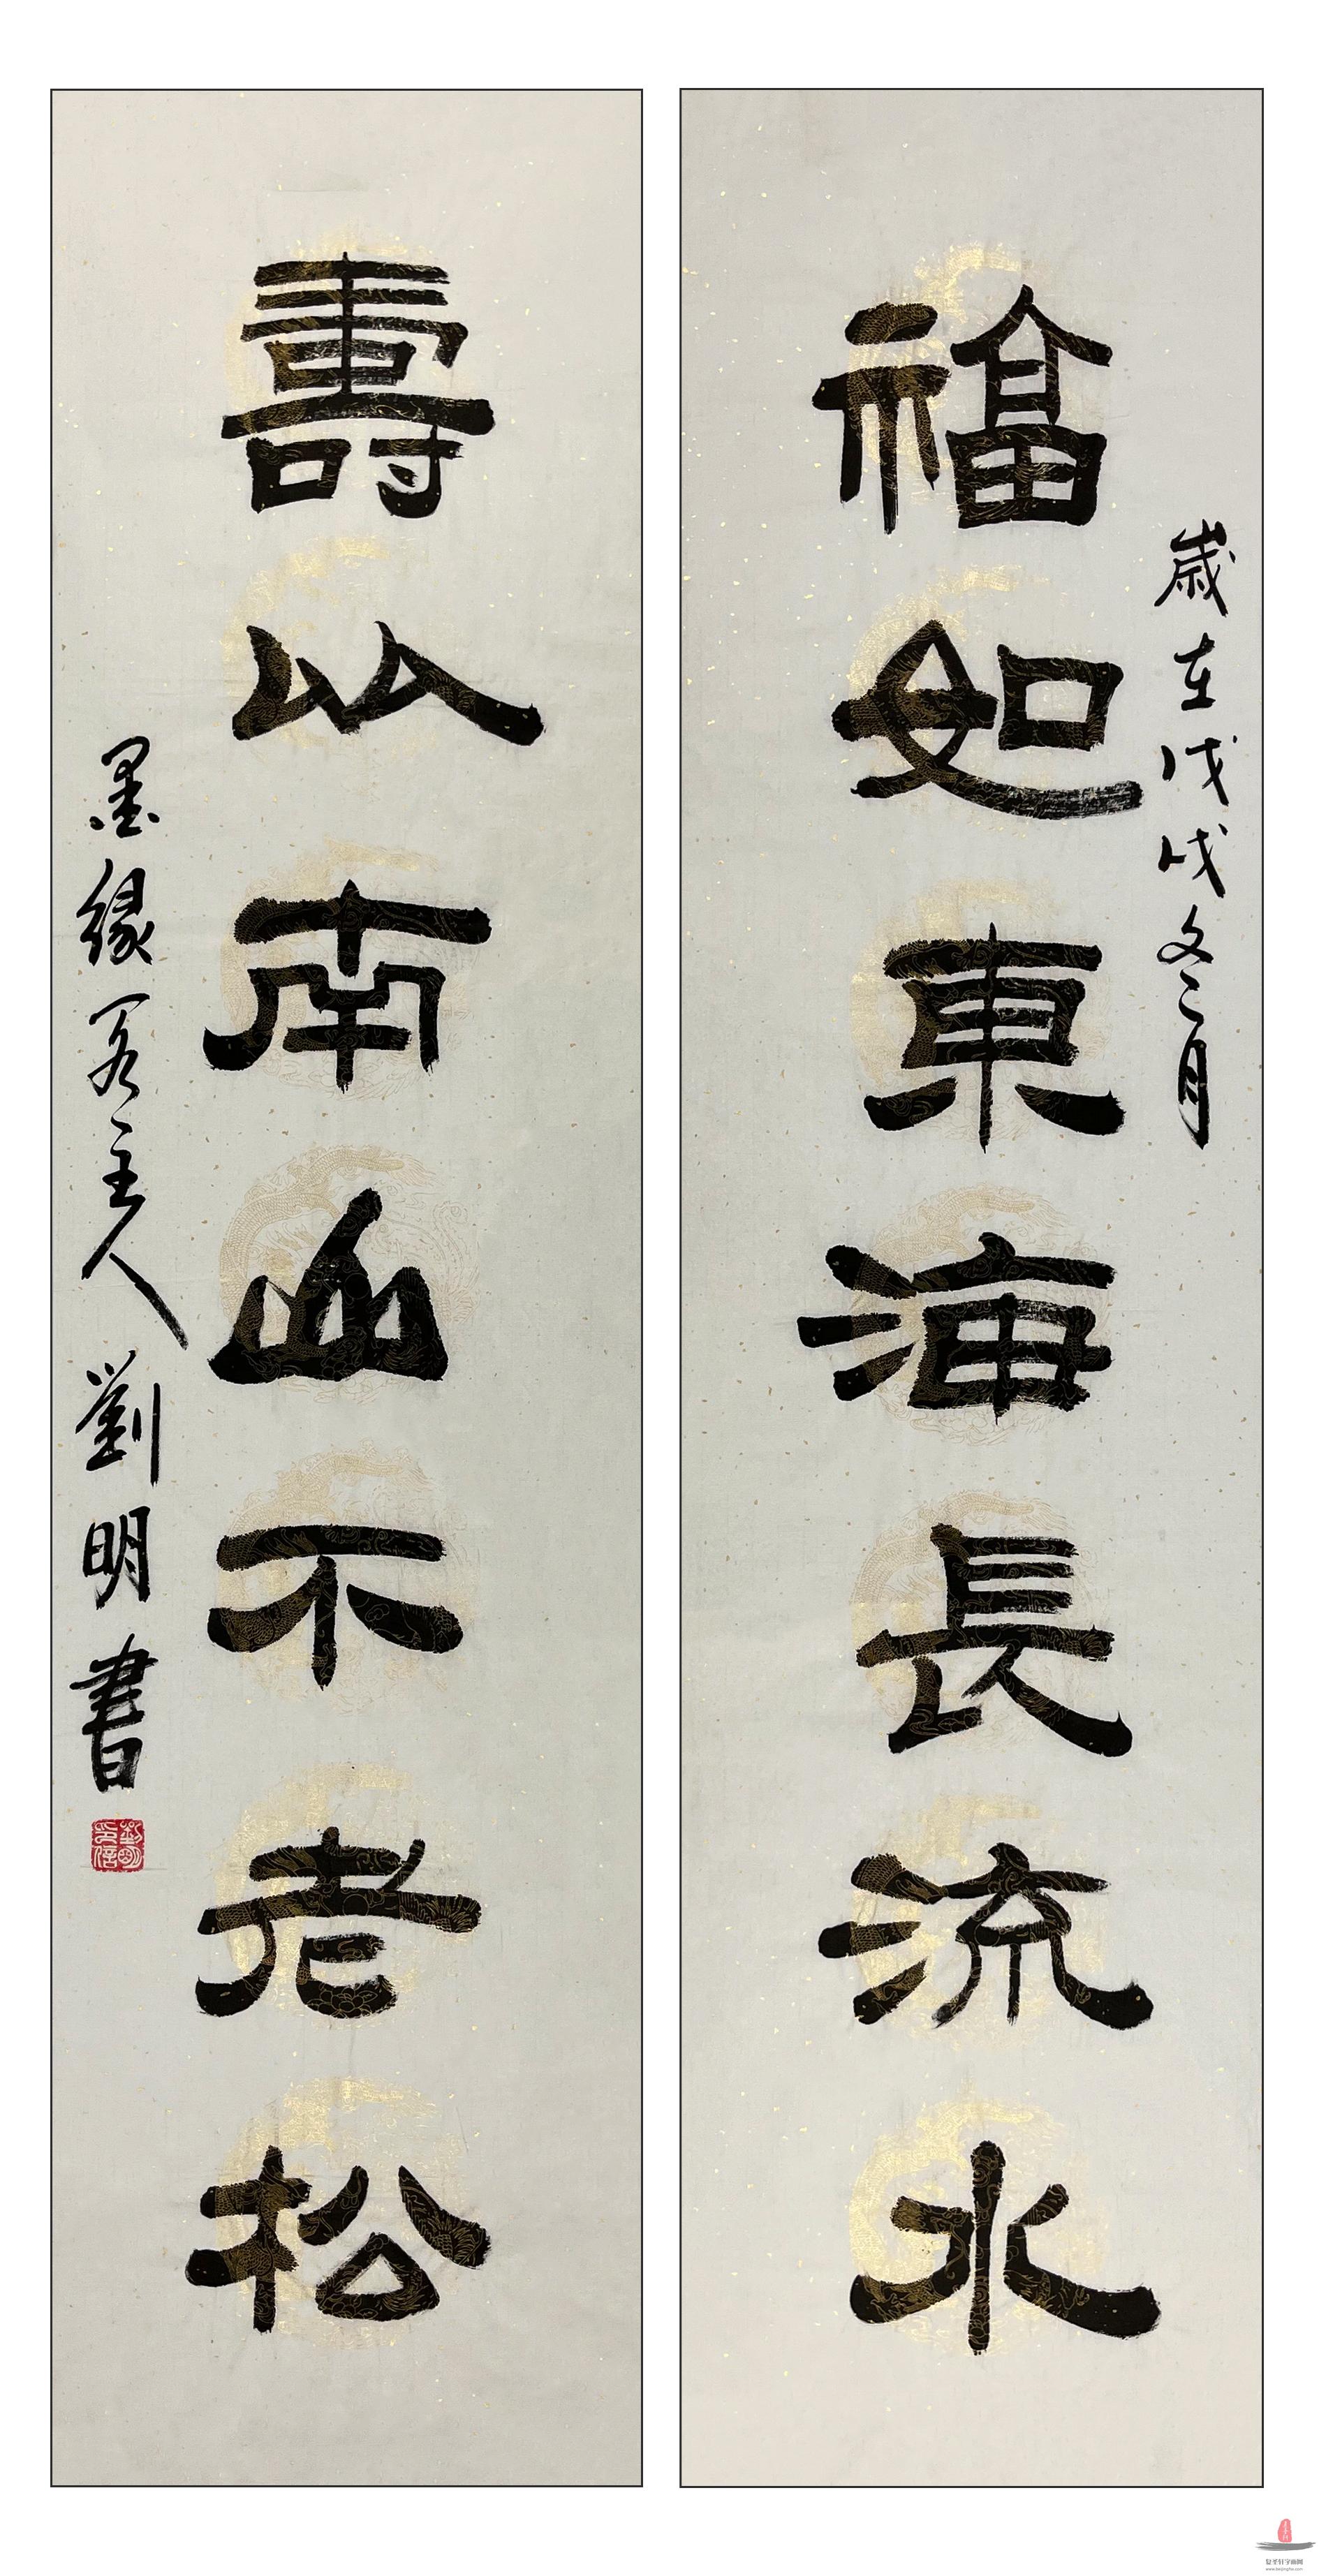 歲在戊戌冬月
福如東海長流水
壽以南山不老松
墨緣閣主人劉明書
劉明印信